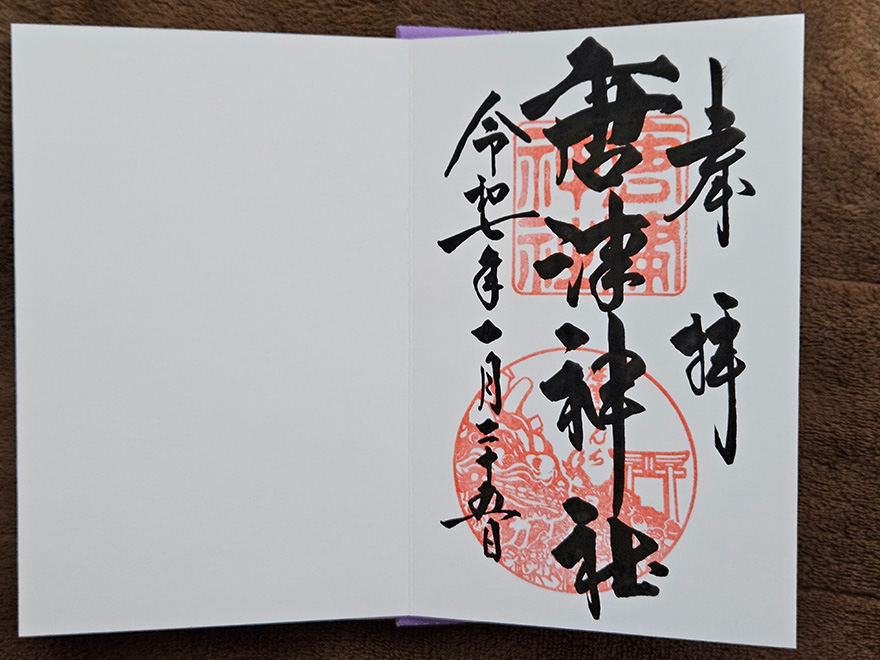 奉拝
唐津神社
令和七年一月二十五日
唐津
神社